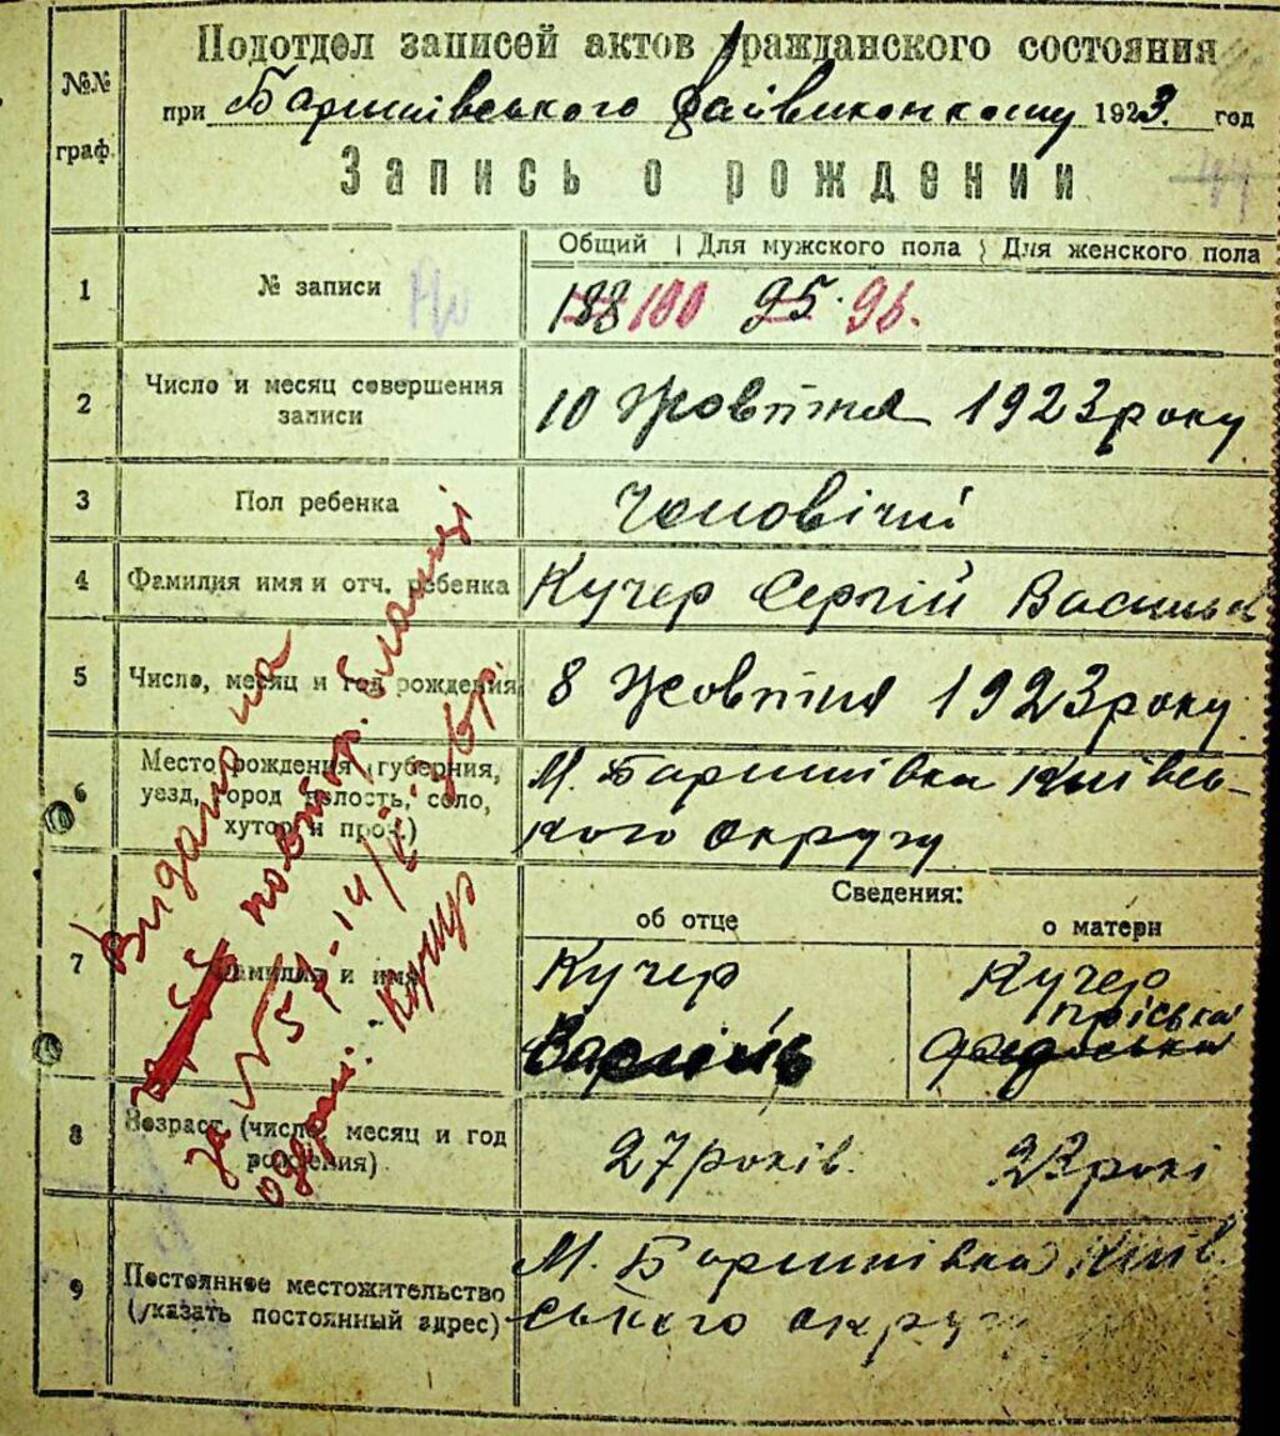 Подотдел записей актов гражданского состояния
№№
граф.
при Баришівського Райвиконкому 1923. год
Запись о рождении
Общий Для мужского пола Для женского пола
1 № записи 188 180 95. 96.
2 Число и месяц совершения
записи
10 Жовтня 1923 року
3 Пол ребенка Чоловічий
4 Фамилия имя и отч. ребенка Кучер Сергій
5 Число, месяц и год рождения 8 Жовтня 1923 року
6 Место рождения (губерния,
уезд, город волость, село,
хутор и проч.)
М. Баришівка Київсь-
кого округу
Сведения:
об отце о матери
7 Фамилия и имя
Кучер Кучер
Василь Пріська
Федоська
8 Возраст (число, месяц и год
рождения).
27 років. 23 рокі
9 Постоянное местожительство
(указать постоянный адрес)
М. Баришівка Київ.
ського округу
Видано на
повтор. бланці
за №
одерж. Кучер